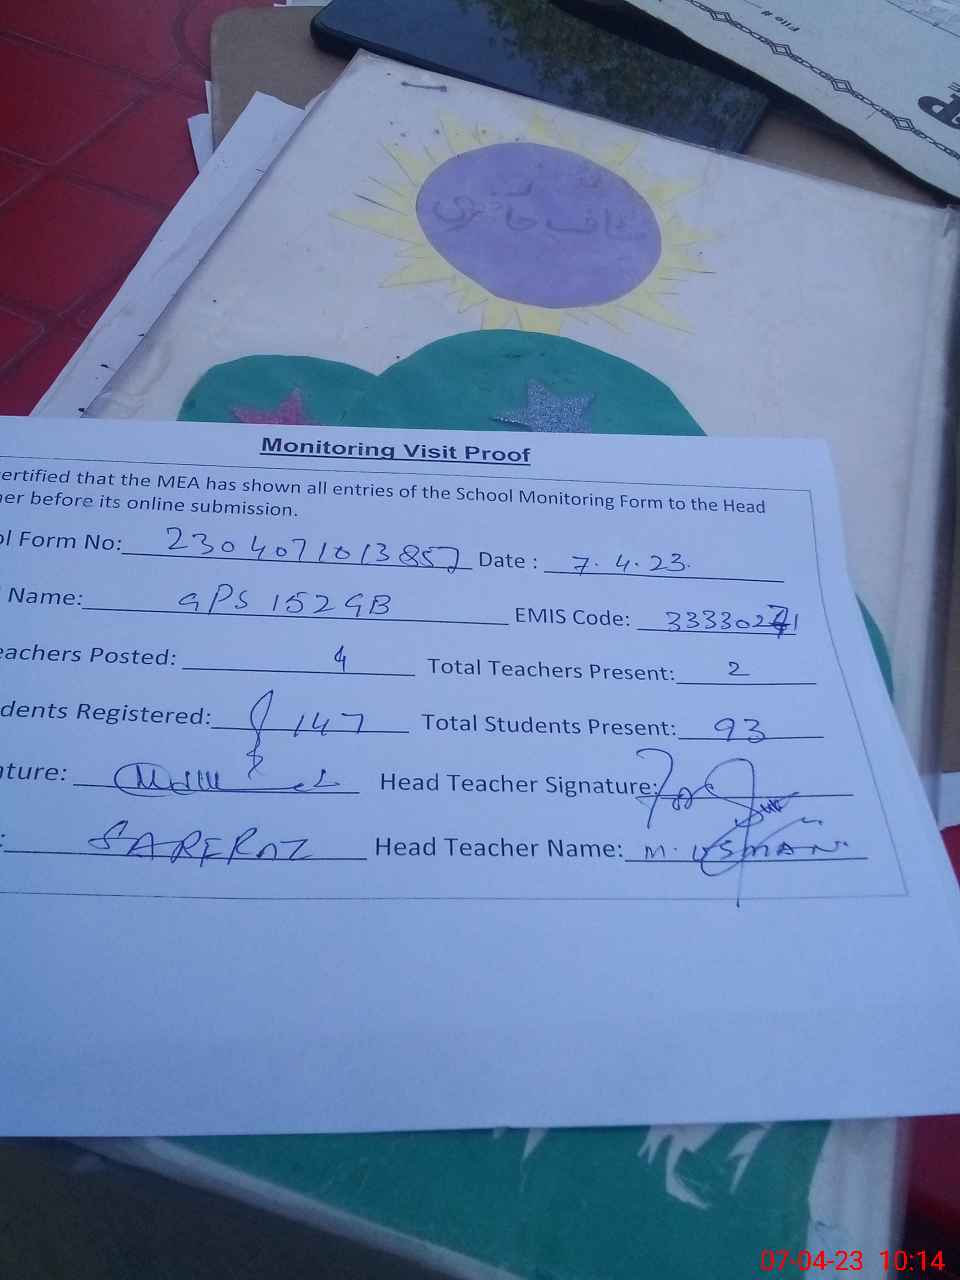 File #
سٹاف حاضری
Monitoring Visit Proof
ertified that the MEA has shown all entries of the School Monitoring Form to the Head
her before its online submission.
ol Form No: 2304071013857 Date : 7.4.23.
Name: GPS 152 GB EMIS Code: 33330271
eachers Posted: 4 Total Teachers Present: 2
dents Registered: 147 Total Students Present: 93
ature: Head Teacher Signature:
: SARFRAZ Head Teacher Name: M. USMAN
07-04-23 10:14